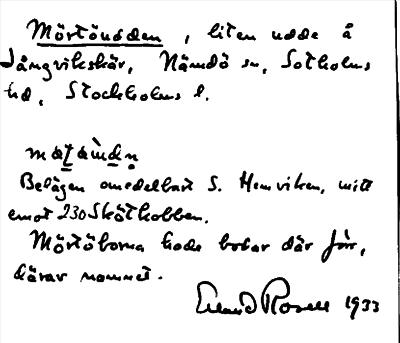 Mörtöudden, liten udde å
Långvikskär, Nämdö sn, Sotholms
hd, Stockholms l.
Belägen omedelbart S. Hemviken, mitt
emot 230 Skötkobben.
Mörtöborna hade bodar där förr,
därav namnet.
Erland Rosell 1933